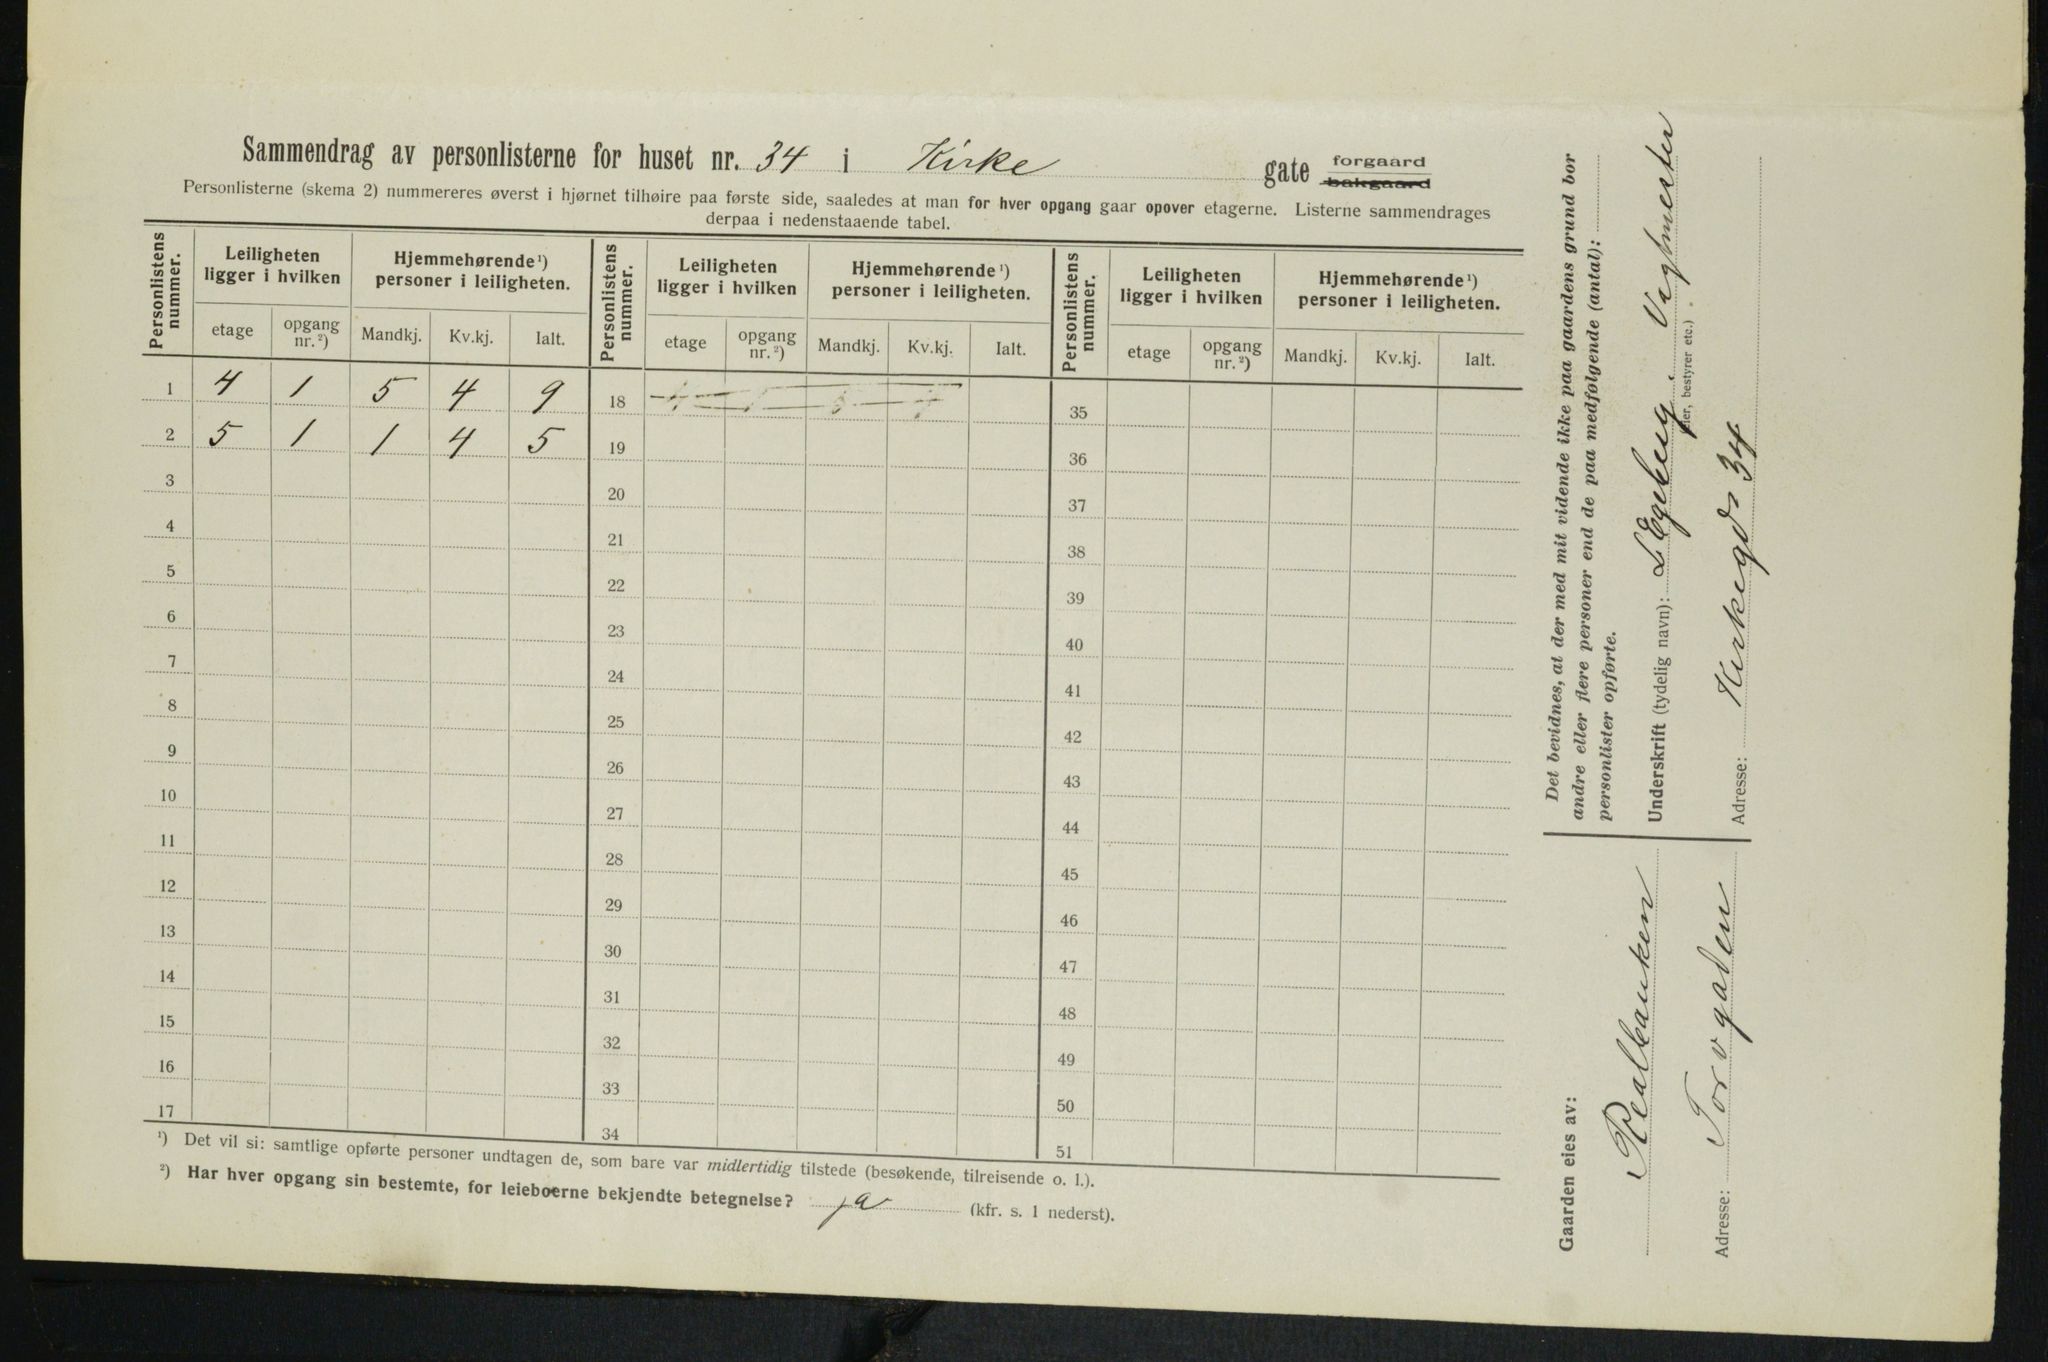 Sammendrag av personlisterne for huset nr. 34 i Kirke gate forgaard bakgaard
Personlisterne (skema 2) nummereres øverst i hjørnet tilhøire paa første side, saaledes at man for hver opgang gaar opover etagerne. Listerne sammendrages
derpaa i nedenstaaende tabel.
Personlistens nummer. Leiligheten ligger i hvilken Hjemmehørende ¹) personer i leiligheten. Personlistens nummer. Leiligheten ligger i hvilken Hjemmehørende ¹) personer i leiligheten. Personlistens nummer. Leiligheten ligger i hvilken Hjemmehørende ¹) personer i leiligheten.
etage opgang nr. ²) Mandkj. Kv.kj. Ialt. etage opgang nr. ²) Mandkj. Kv.kj. Ialt. etage opgang nr. ²) Mandkj. Kv.kj. Ialt.
1 4 1 5 4 9 18 35
2 5 1 1 4 5 19 36
3 20 37
4 21 38
5 22 39
6 23 40
7 24 41
8 25 42
9 26 43
10 27 44
11 28 45
12 29 46
13 30 47
14 31 48
15 32 49
16 33 50
17 34 51
¹) Det vil si: samtlige opførte personer undtagen de, som bare var midlertidig tilstede (besøkende, tilreisende o. l.).
²) Har hver opgang sin bestemte, for leieboerne bekjendte betegnelse? ja (kfr. s. 1 nederst).
Det bevidnes, at der med mit vidende ikke paa gaardens grund bor
andre eller flere personer end de paa medfølgende (antal):
personlister opførte.
Underskrift (tydelig navn): L Egeberg, Vagtmester
(eier, bestyrer etc.)
Adresse: Kirkegd 34
Gaarden eies av:
Realbanken
Adresse: Torvgaden